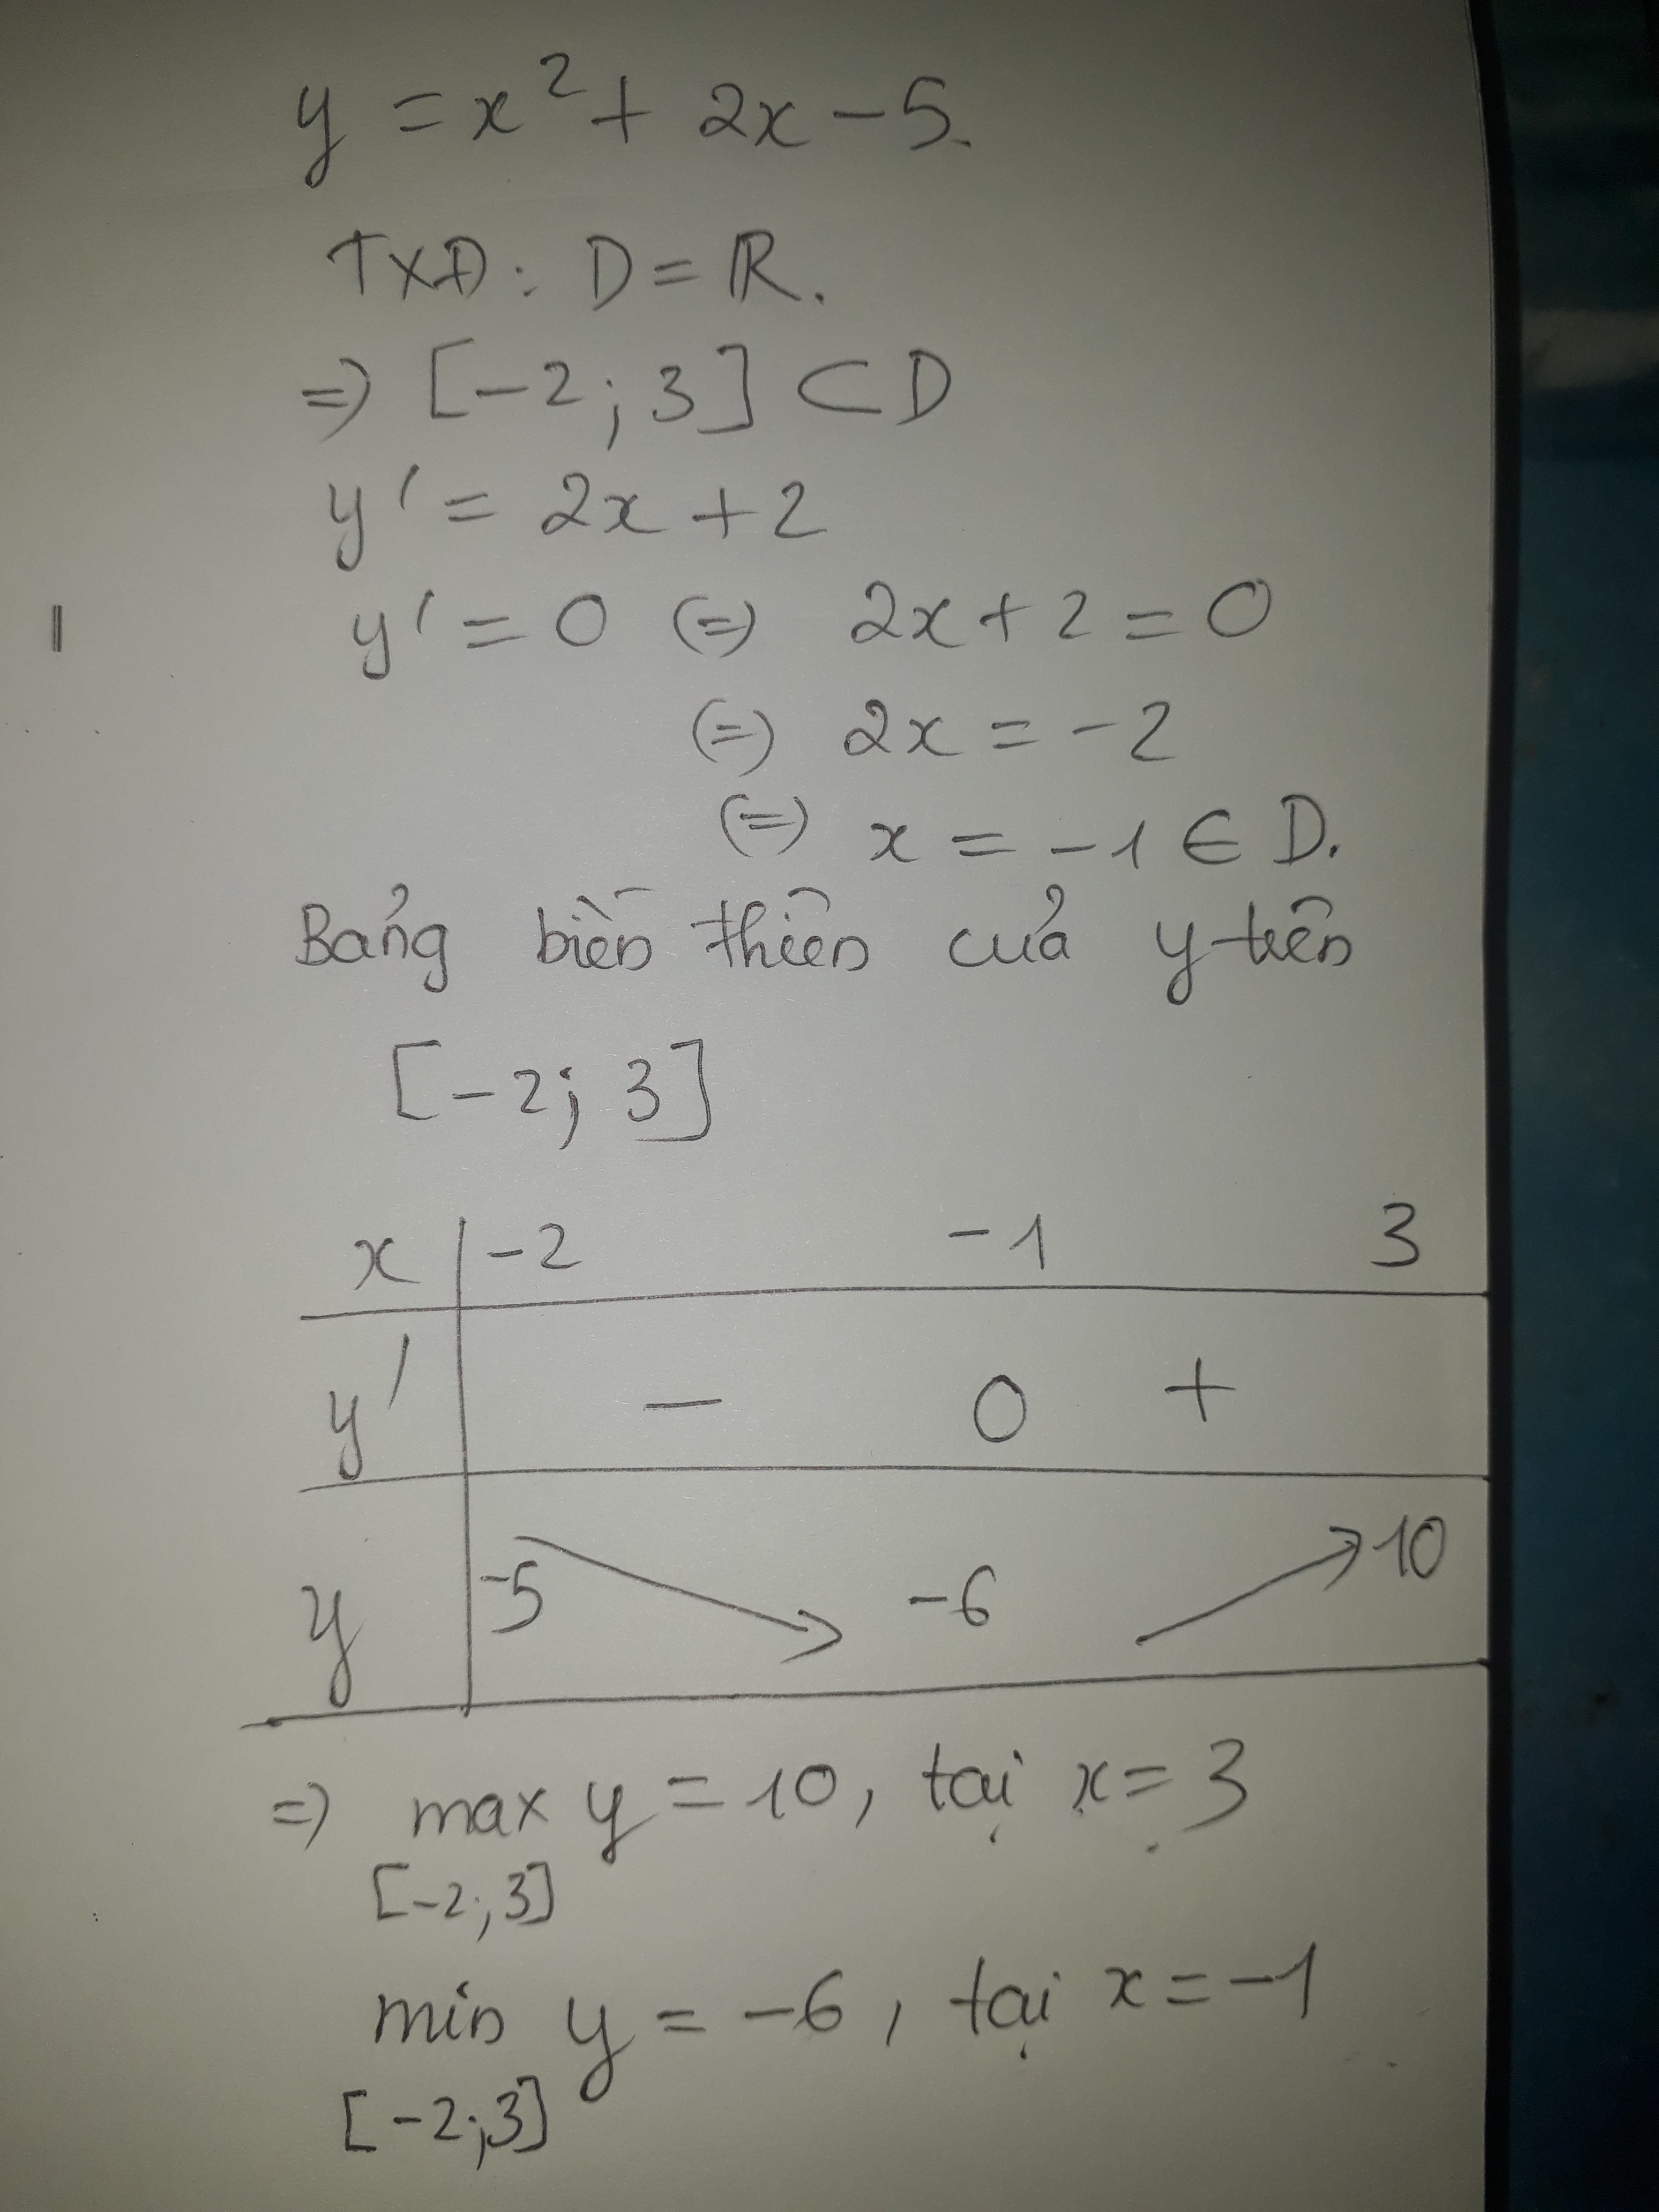 y = x² + 2x - 5.
TXĐ: D = ℝ.
=> [-2; 3] ⊂ D
y' = 2x + 2
y' = 0 (=) 2x + 2 = 0
(=) 2x = -2
(=) x = -1 ∈ D.
Bảng biến thiên của y trên
[-2; 3]
x | -2 -1 3
y' - 0 +
y -5 ↘ -6 ↗ 10
=> max y = 10, tại x = 3
[-2; 3]
min y = -6, tại x = -1
[-2; 3]